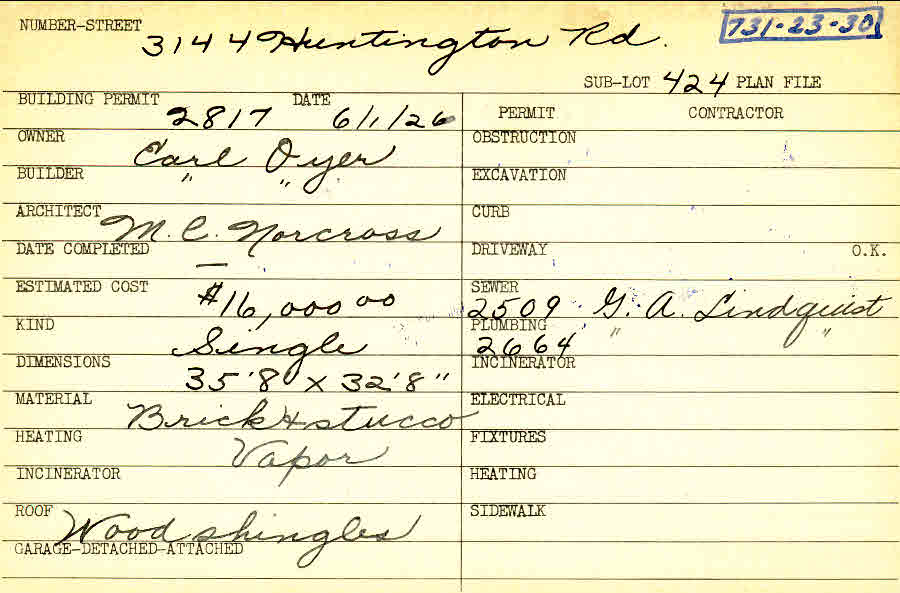 NUMBER-STREET 3144 Huntington Rd. 731-23-30
SUB-LOT 424 PLAN FILE
BUILDING PERMIT 2817 DATE 6/1/26
OWNER Carl Dyer
BUILDER " "
ARCHITECT M. C. Norcross
DATE COMPLETED —
ESTIMATED COST $16,000 00
KIND Single
DIMENSIONS 35'8" x 32'8"
MATERIAL Brick & stucco
HEATING Vapor
INCINERATOR
ROOF Wood shingles
GARAGE-DETACHED-ATTACHED
PERMIT CONTRACTOR
OBSTRUCTION
EXCAVATION
CURB
DRIVEWAY O.K.
SEWER 2509 G. A. Lindquist
PLUMBING 2664 " "
INCINERATOR
ELECTRICAL
FIXTURES
HEATING
SIDEWALK